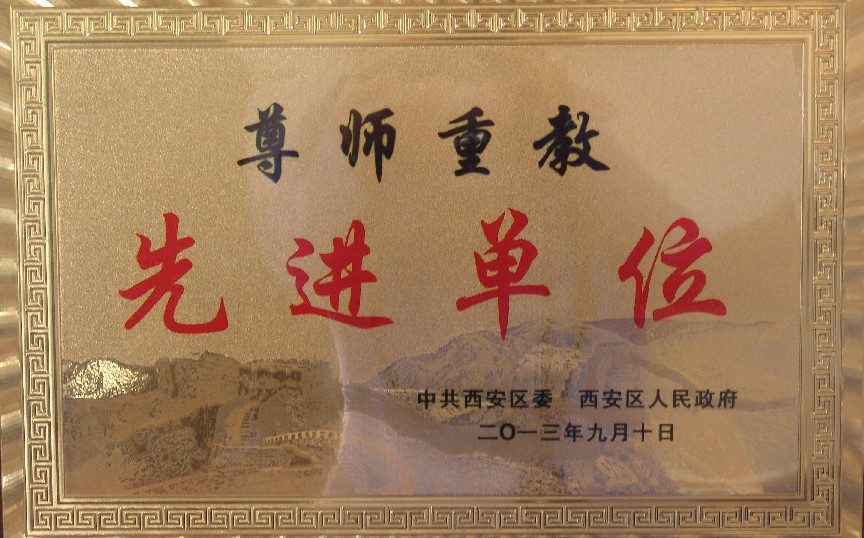 尊师重教
先进单位
中共西安区委 西安区人民政府
二〇一三年九月十日